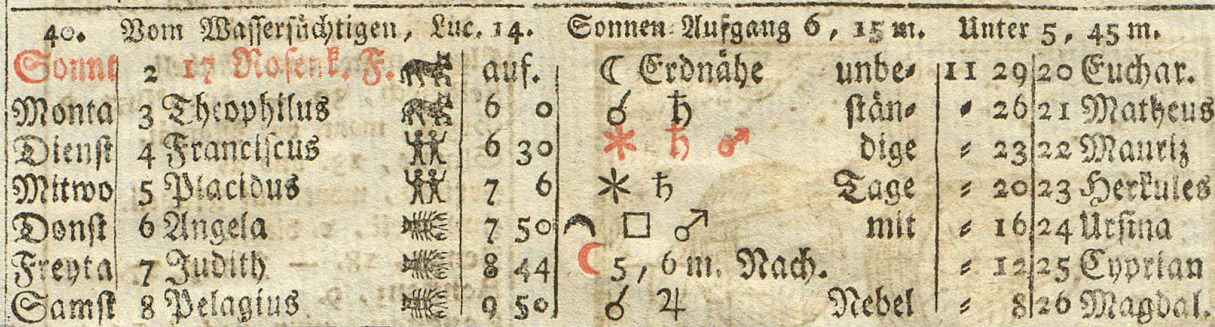 40. Vom Wassersüchtigen, Luc. 14. Sonnen-Aufgang 6, 15 m. Unter 5, 45 m.
Sonnt 2 17 Rosenk. F. auf. ☾ Erdnähe unbe- 11 29 20 Euchar.
Monta 3 Theophilus 6 0 ☌ ♄ stän- - 26 21 Matheus
Dienst 4 Franciscus 6 30 ⚹ ♄ ♂ dige - 23 22 Mauriz
Mitwo 5 Placidus 7 6 ⚹ ♄ Tage - 20 23 Herkules
Donst 6 Angela 7 50 □ ♂ mit - 16 24 Ursina
Freyta 7 Judith 8 44 ☾ 5, 6 m. Nach. - 12 25 Cyprian
Samst 8 Pelagius 9 50 ☌ ♃ Nebel - 8 26 Magdal.